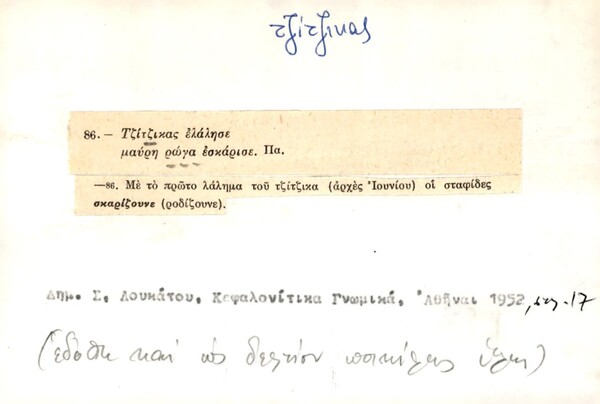 τζίτζικας
86.— Τζίτζικας ἐλάλησε
μαύρη ρώγα ἐσκάρισε. Πα.
—86. Μὲ τὸ πρῶτο λάλημα τοῦ τζίτζικα (ἀρχὲς Ἰουνίου) οἱ σταφίδες
σκαρίζουνε (ροδίζουνε).
Δημ. Σ. Λουκάτου, Κεφαλονίτικα Γνωμικά, Ἀθῆναι 1952, σελ. 17
(ἐδόθη καὶ ὡς δελτίον ποικίλης ὕλης)